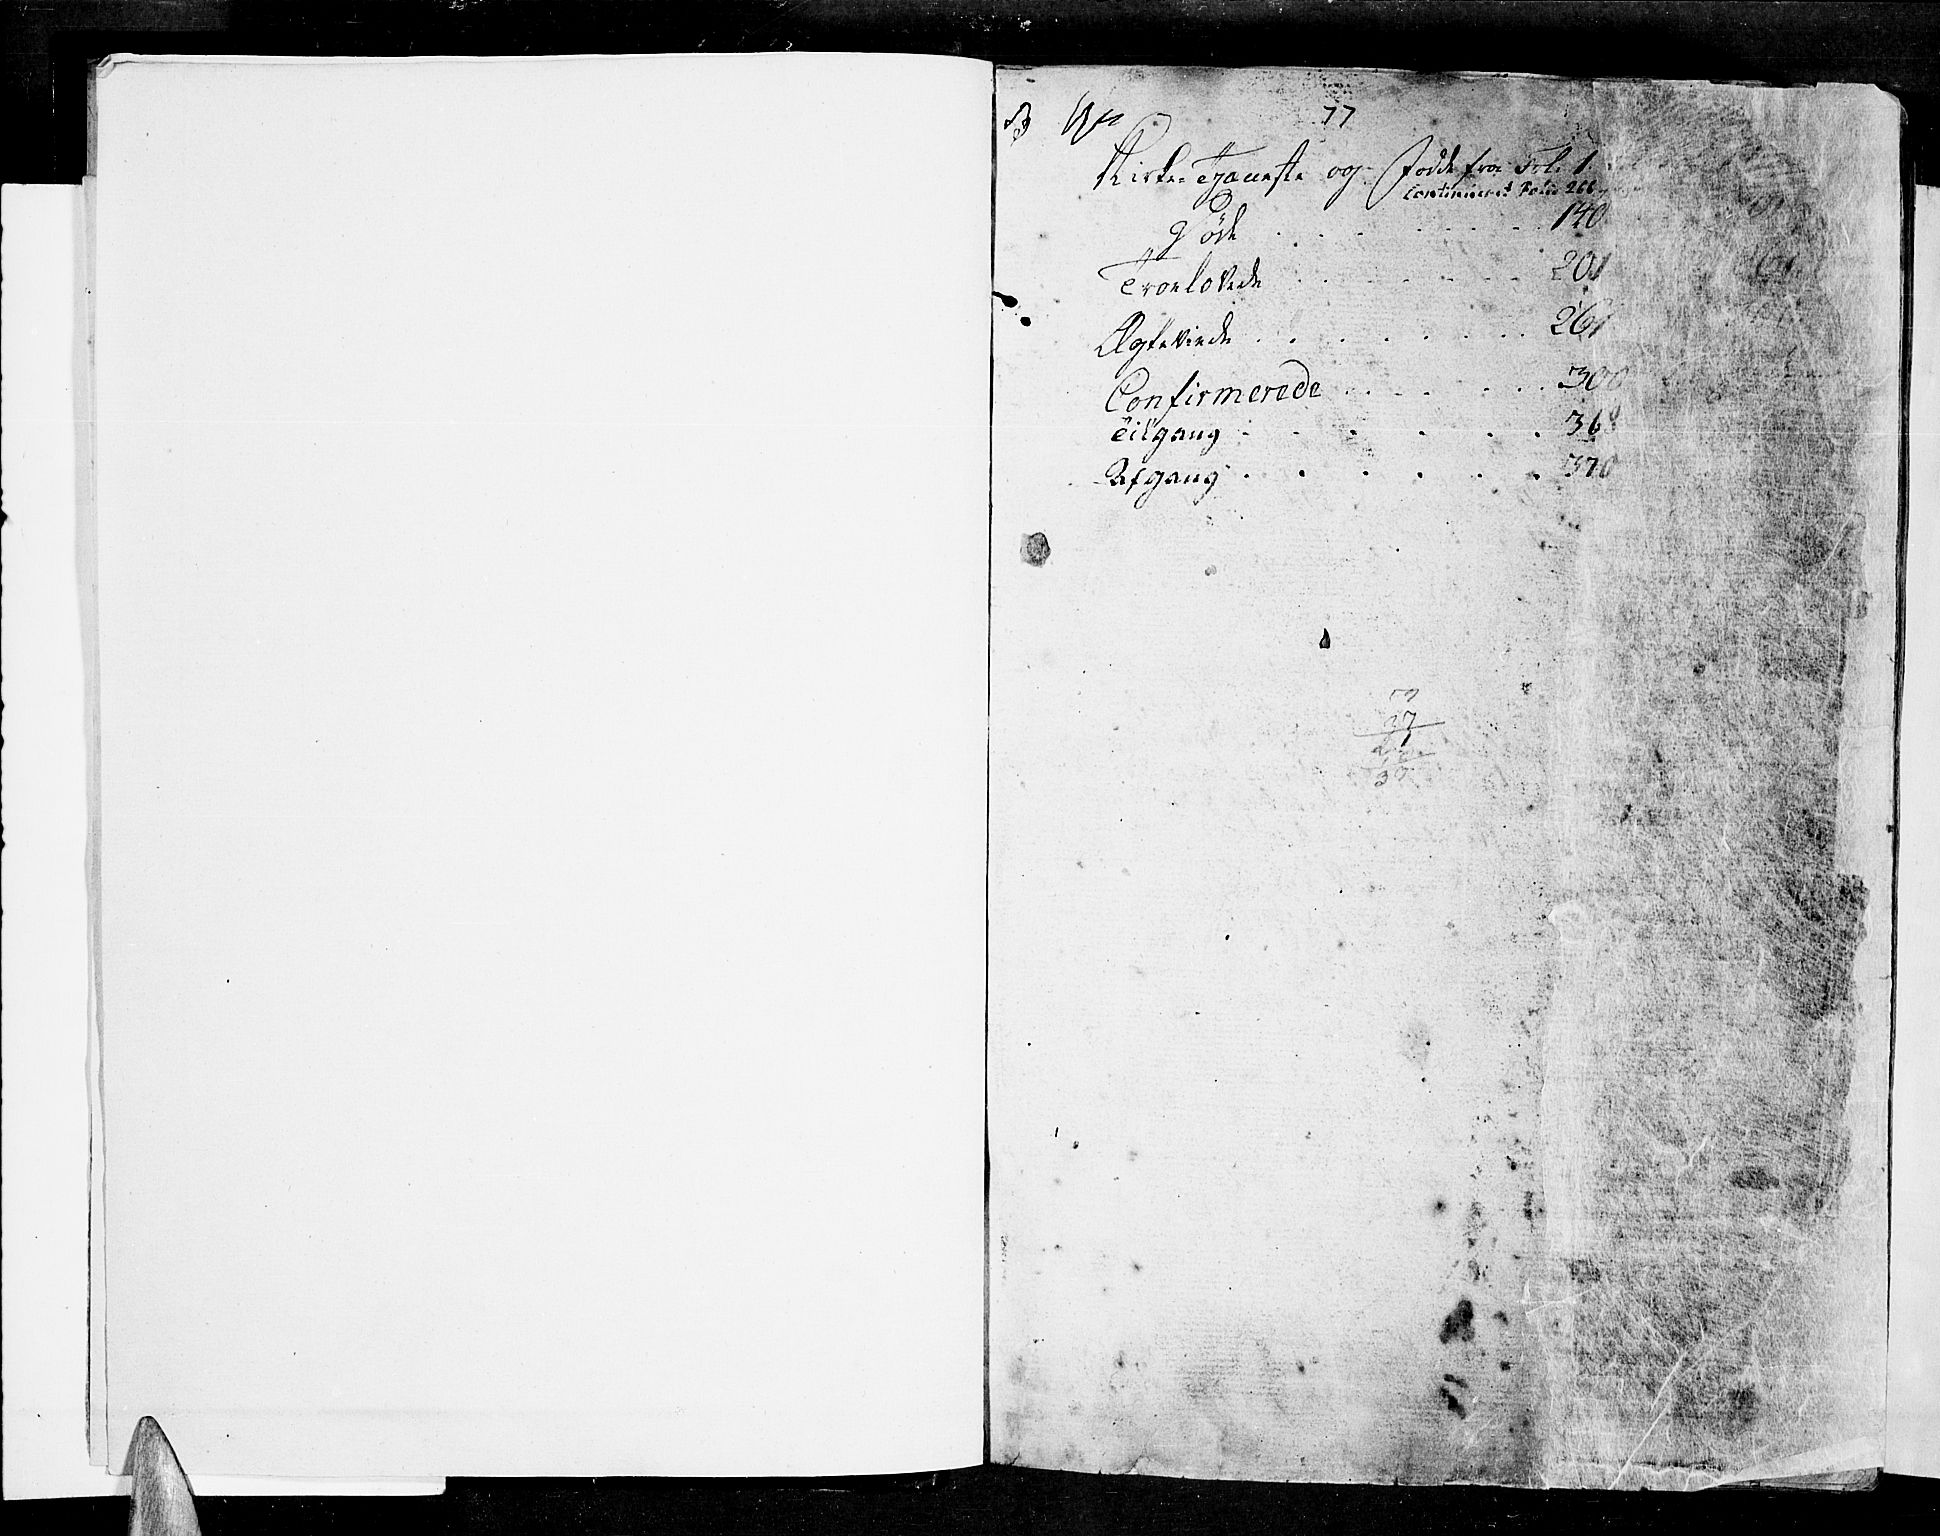 77
Kirke-Tjeneste og Födde fra Fol. 1
Continueret Folio 266
Döde . . . . . . 140
Troelovede . . . . . . 201
Ægteviede . . . . . . . 261
Confirmerede . . . . . . 300
Tilgang . . . . . . 368
Afgang . . . . . . 370